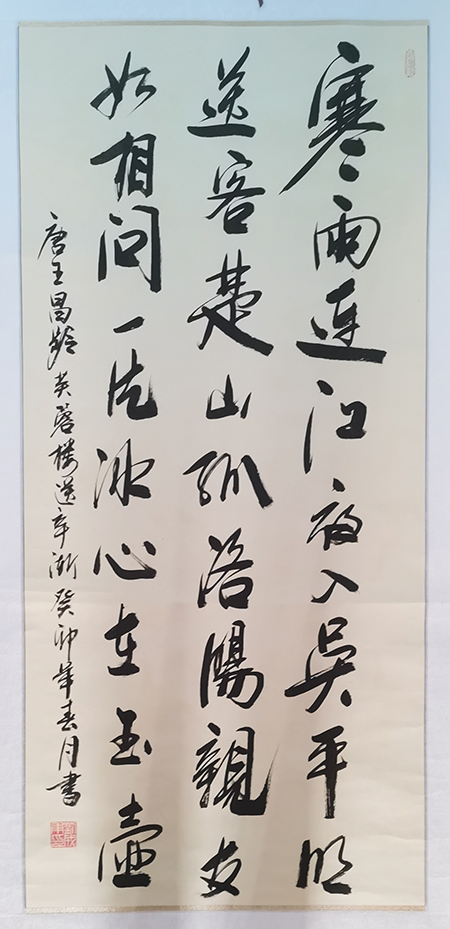 寒雨連江夜入吳平明
送客楚山孤洛陽親友
如相問一片冰心在玉壺
唐王昌齡芙蓉樓送辛漸癸卯年春月書